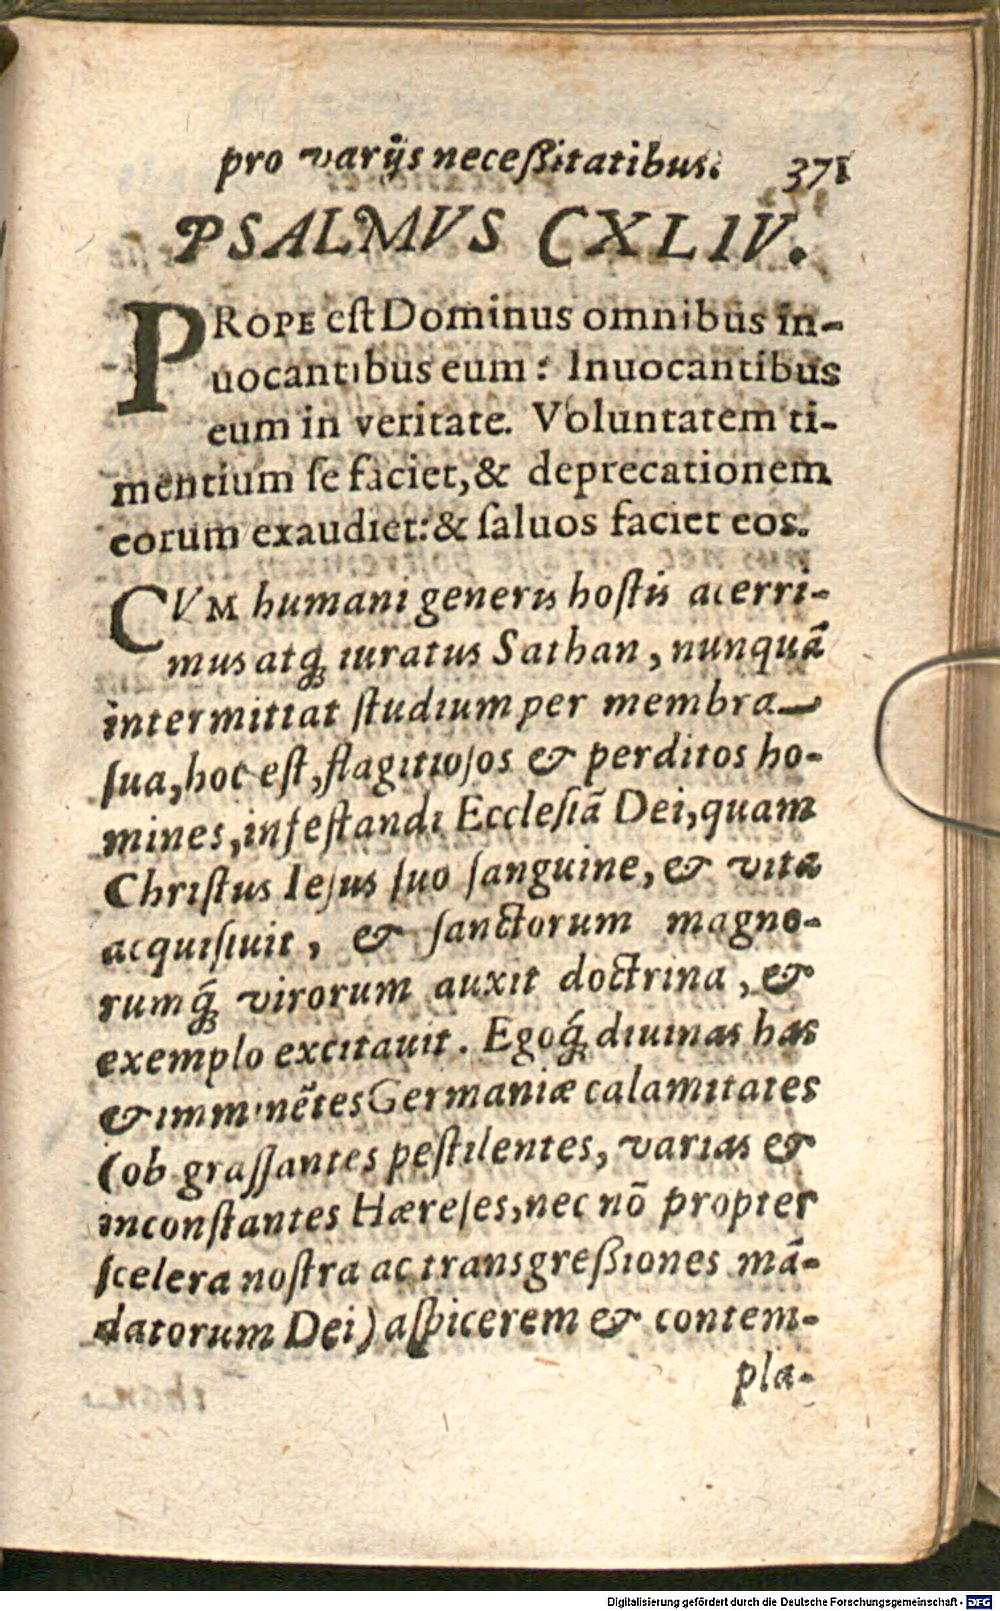 pro varijs neceßitatibus. 371
PSALMVS CXLIV.
PROPE est Dominus omnibus in-
uocantibus eum: Inuocantibus
eum in veritate. Voluntatem ti-
mentium se faciet, & deprecationem
eorum exaudiet: & saluos faciet eos.
CVM humani generis hostis acerri-
mus atq́; iuratus Sathan, nunquā
intermittat studium per membra
sua, hoc est, flagitiosos & perditos ho-
mines, infestandi Ecclesiā Dei, quam
Christus Iesus suo sanguine, & vita
acquisiuit, & sanctorum magno-
rumq́; virorum auxit doctrina, &
exemplo excitauit. Egoq́; diuinas has
& imminētes Germaniæ calamitates
(ob grassantes pestilentes, varias &
inconstantes Hæreses, nec nō propter
scelera nostra ac transgreßiones mā-
datorum Dei) aspicerem & contem-
pla-
Digitalisierung gefördert durch die Deutsche Forschungsgemeinschaft - DFG